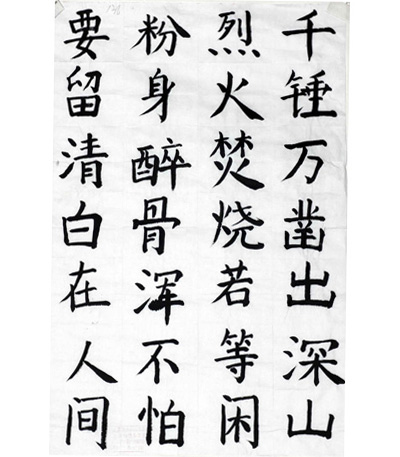 千锤万凿出深山
烈火焚烧若等闲
粉身醉骨浑不怕
要留清白在人间